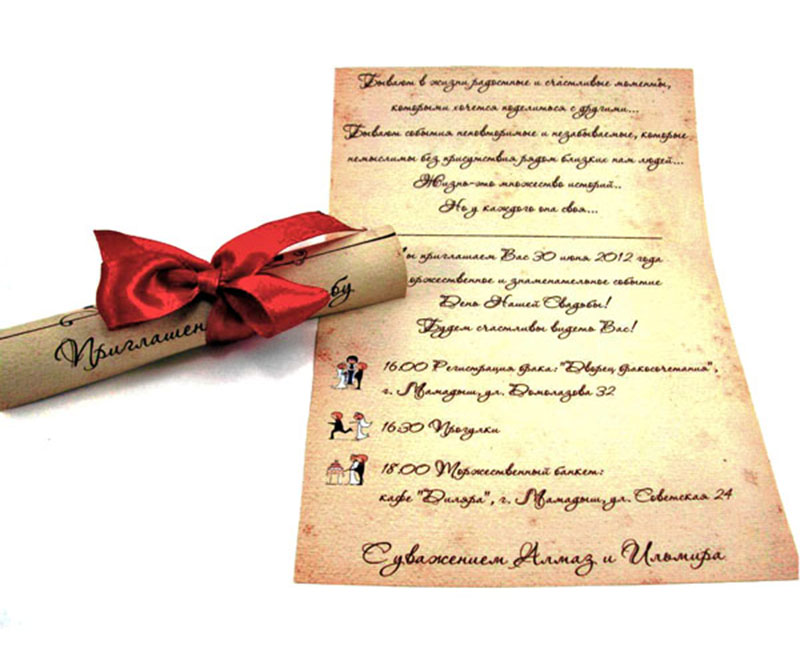 Приглашен бу
Бывают в жизни радостные и счастливые моменты,
которыми хочется поделиться с другими...
Бывают события неповторимые и незабываемые, которые
немыслимы без присутствия рядом близких нам людей...
Жизнь-это множество историй..
Но у каждого она своя...
ы приглашаем Вас 30 июня 2012 года
оржественное и знаменательное событие
День Нашей Свадьбы!
Будем счастливы видеть Вас!
16.00 Регистрация брака: "Дворец бракосочетания",
г. Мамадыш, ул. Домолазова 32
16.30 Прогулки
18.00 Торжественный банкет:
кафе "Диляра", г. Мамадыш, ул. Советская 24
С уважением Алмаз и Ильмира